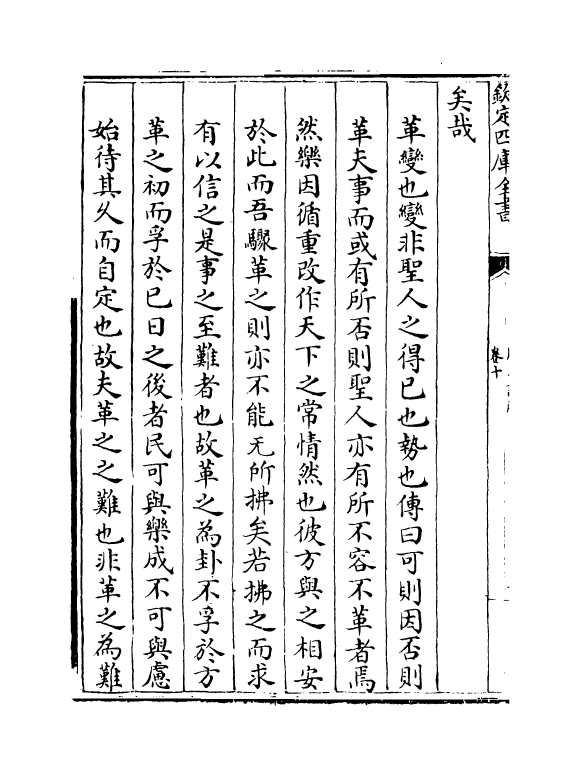 欽定四庫全書
卷十
矣哉
革變也變非聖人之得已也勢也傳曰可則因否則
革夫事而或有所否則聖人亦有所不容不革者焉
然樂因循重改作天下之常情然也彼方與之相安
於此而吾驟革之則亦不能无所拂矣若拂之而求
有以信之是事之至難者也故革之為卦不孚於方
革之初而孚於已日之後者民可與樂成不可與慮
始待其乆而自定也故夫革之之難也非革之為難